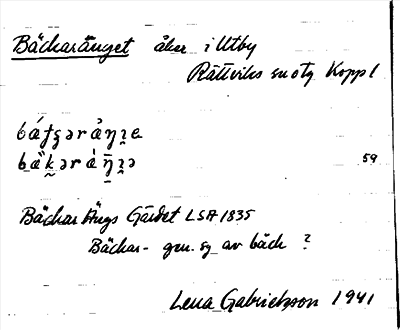 Bäckaränget åker i Utby
Rättviks sn otg Koppl
59
Bäckar Ängs Gärdet LSA 1835
Bäckar- gen. sg. av bäck ?
Lena Gabrielsson 1941